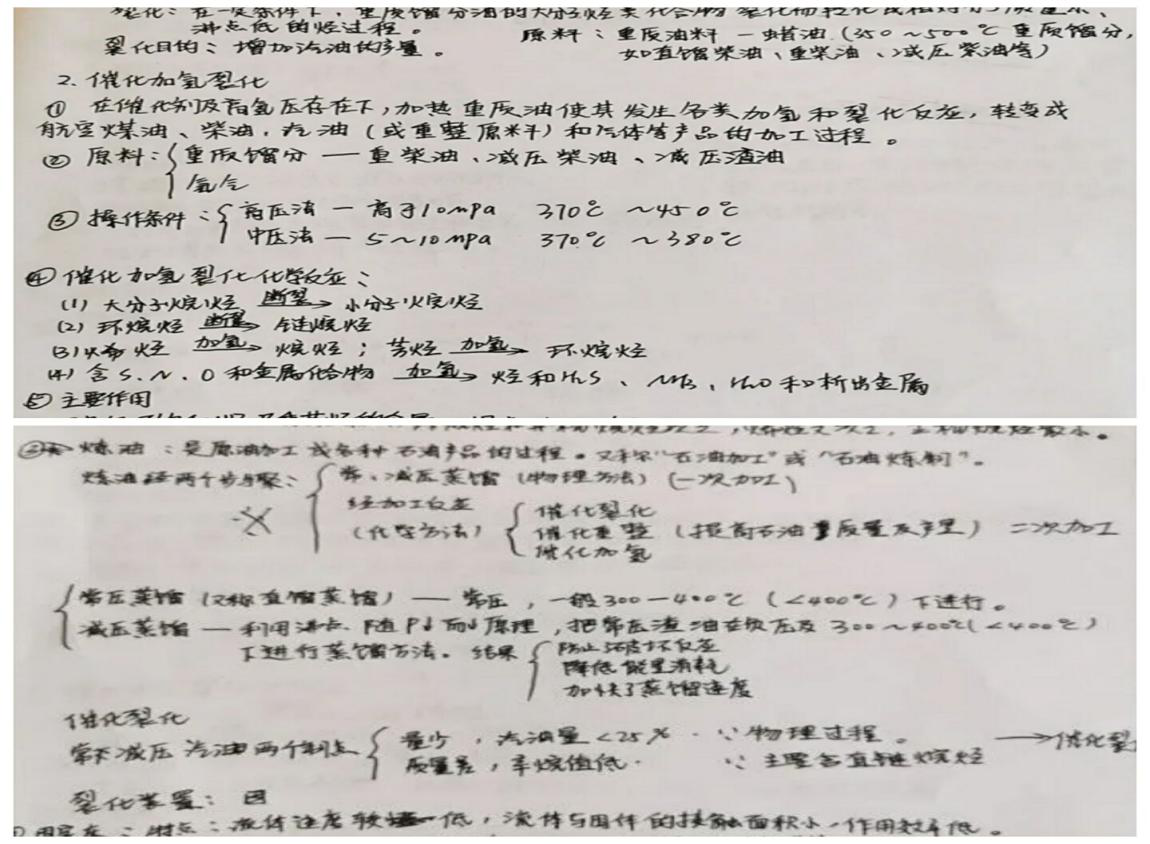 裂化：在一定条件下，重质馏分油的大分子烃类化合物裂化而转化成相对分子质量小、
沸点低的烃过程。 原料：重质油料 — 蜡油（350～500℃重质馏分，
裂化目的：增加汽油的产量。 如直馏柴油、重柴油、减压柴油等）
2. 催化加氢裂化
① 在催化剂及有氢压存在下，加热重质油使其发生各类加氢和裂化反应，转变成
航空煤油、柴油，汽油（或重整原料）和气体等产品的加工过程。
② 原料：重质馏分 — 重柴油、减压柴油、减压渣油
氢气
③ 操作条件：高压法 — 高于10mpa 370℃ ～450℃
中压法 — 5～10mpa 370℃ ～380℃
④ 催化加氢裂化化学反应：
(1) 大分子烷烃 断裂→ 小分子烷烃
(2) 环烷烃 断裂→ 链烷烃
(3) 烯烃 加氢→ 烷烃；芳烃 加氢→ 环烷烃
(4) 含S、N、O和金属化合物 加氢→ 烃和H₂S、NH₃、H₂O和析出金属
⑤ 主要作用
炼油：是原油加工成各种石油产品的过程。又称“石油加工”或“石油炼制”。
炼油经两个步骤：常、减压蒸馏（物理方法）（一次加工）
经加工反应
（化学方法） 催化裂化
催化重整（提高石油质量及产量） 二次加工
催化加氢
常压蒸馏（又称直馏蒸馏）— 常压，一般300—400℃（<400℃）下进行。
减压蒸馏 — 利用沸点随P↓而↓原理，把常压渣油在负压及300～400℃（<400℃）
下进行蒸馏方法。结果 防止了破坏反应
降低能量消耗
加快了蒸馏速度
催化裂化
常减压汽油两个缺点 量少，汽油量<25%. ∵物理过程。 →催化裂
质量差，辛烷值低. ∵主要含直链烷烃
裂化装置：固
特点：流体速度较低，流体与固体的接触面积小，作用效率低。